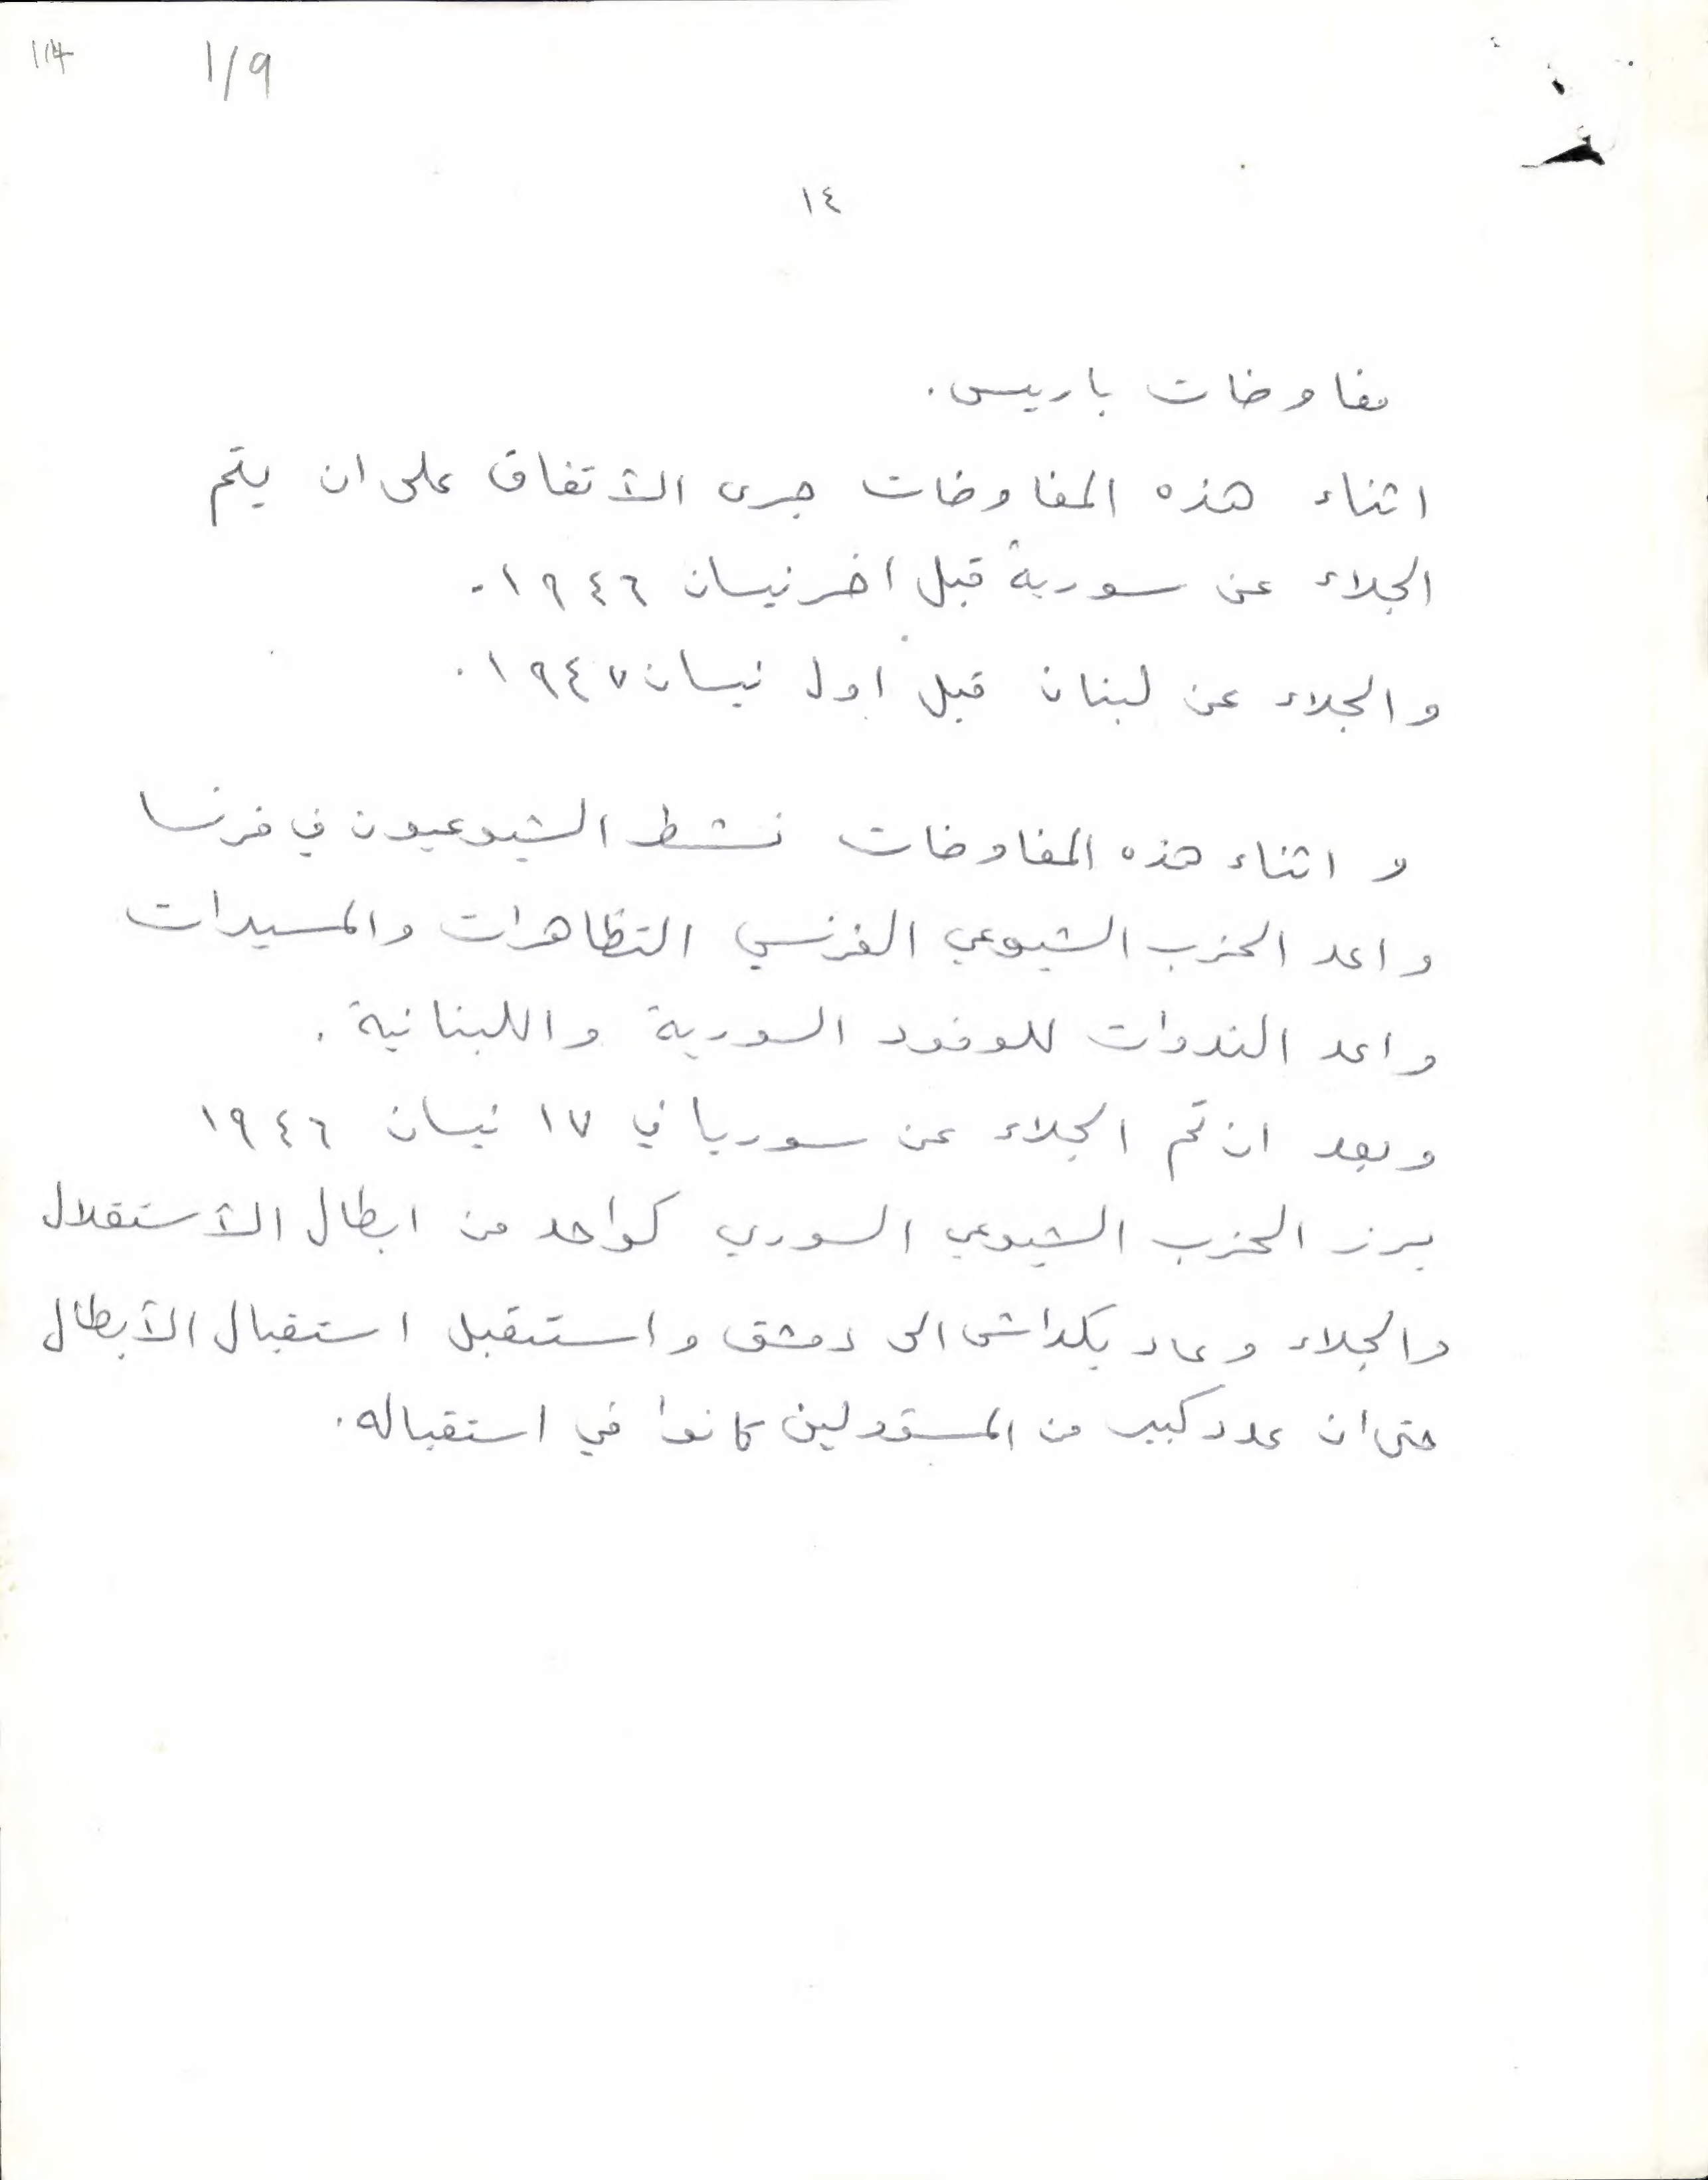 114 1/9
١٤
مفاوضات باريس.
اثناء هذه المفاوضات جرى الاتفاق على ان يتم
الجلاء عن سورية قبل اخر نيسان ١٩٤٦.
والجلاء عن لبنان قبل اول نيسان ١٩٤٧.
و اثناء هذه المفاوضات نشط الشيوعيون في فرنسا
واعد الحزب الشيوعي الفرنسي التظاهرات والمسيرات
واعد الندوات للوفود السورية واللبنانية.
وبعد ان تم الجلاء عن سوريا في ١٧ نيسان ١٩٤٦
برز الحزب الشيوعي السوري كواحد من ابطال الاستقلال
والجلاء وعاد بكداش الى دمشق واستقبل استقبال الأبطال
حتى ان عدد كبير من المسؤولين كانوا في استقباله.